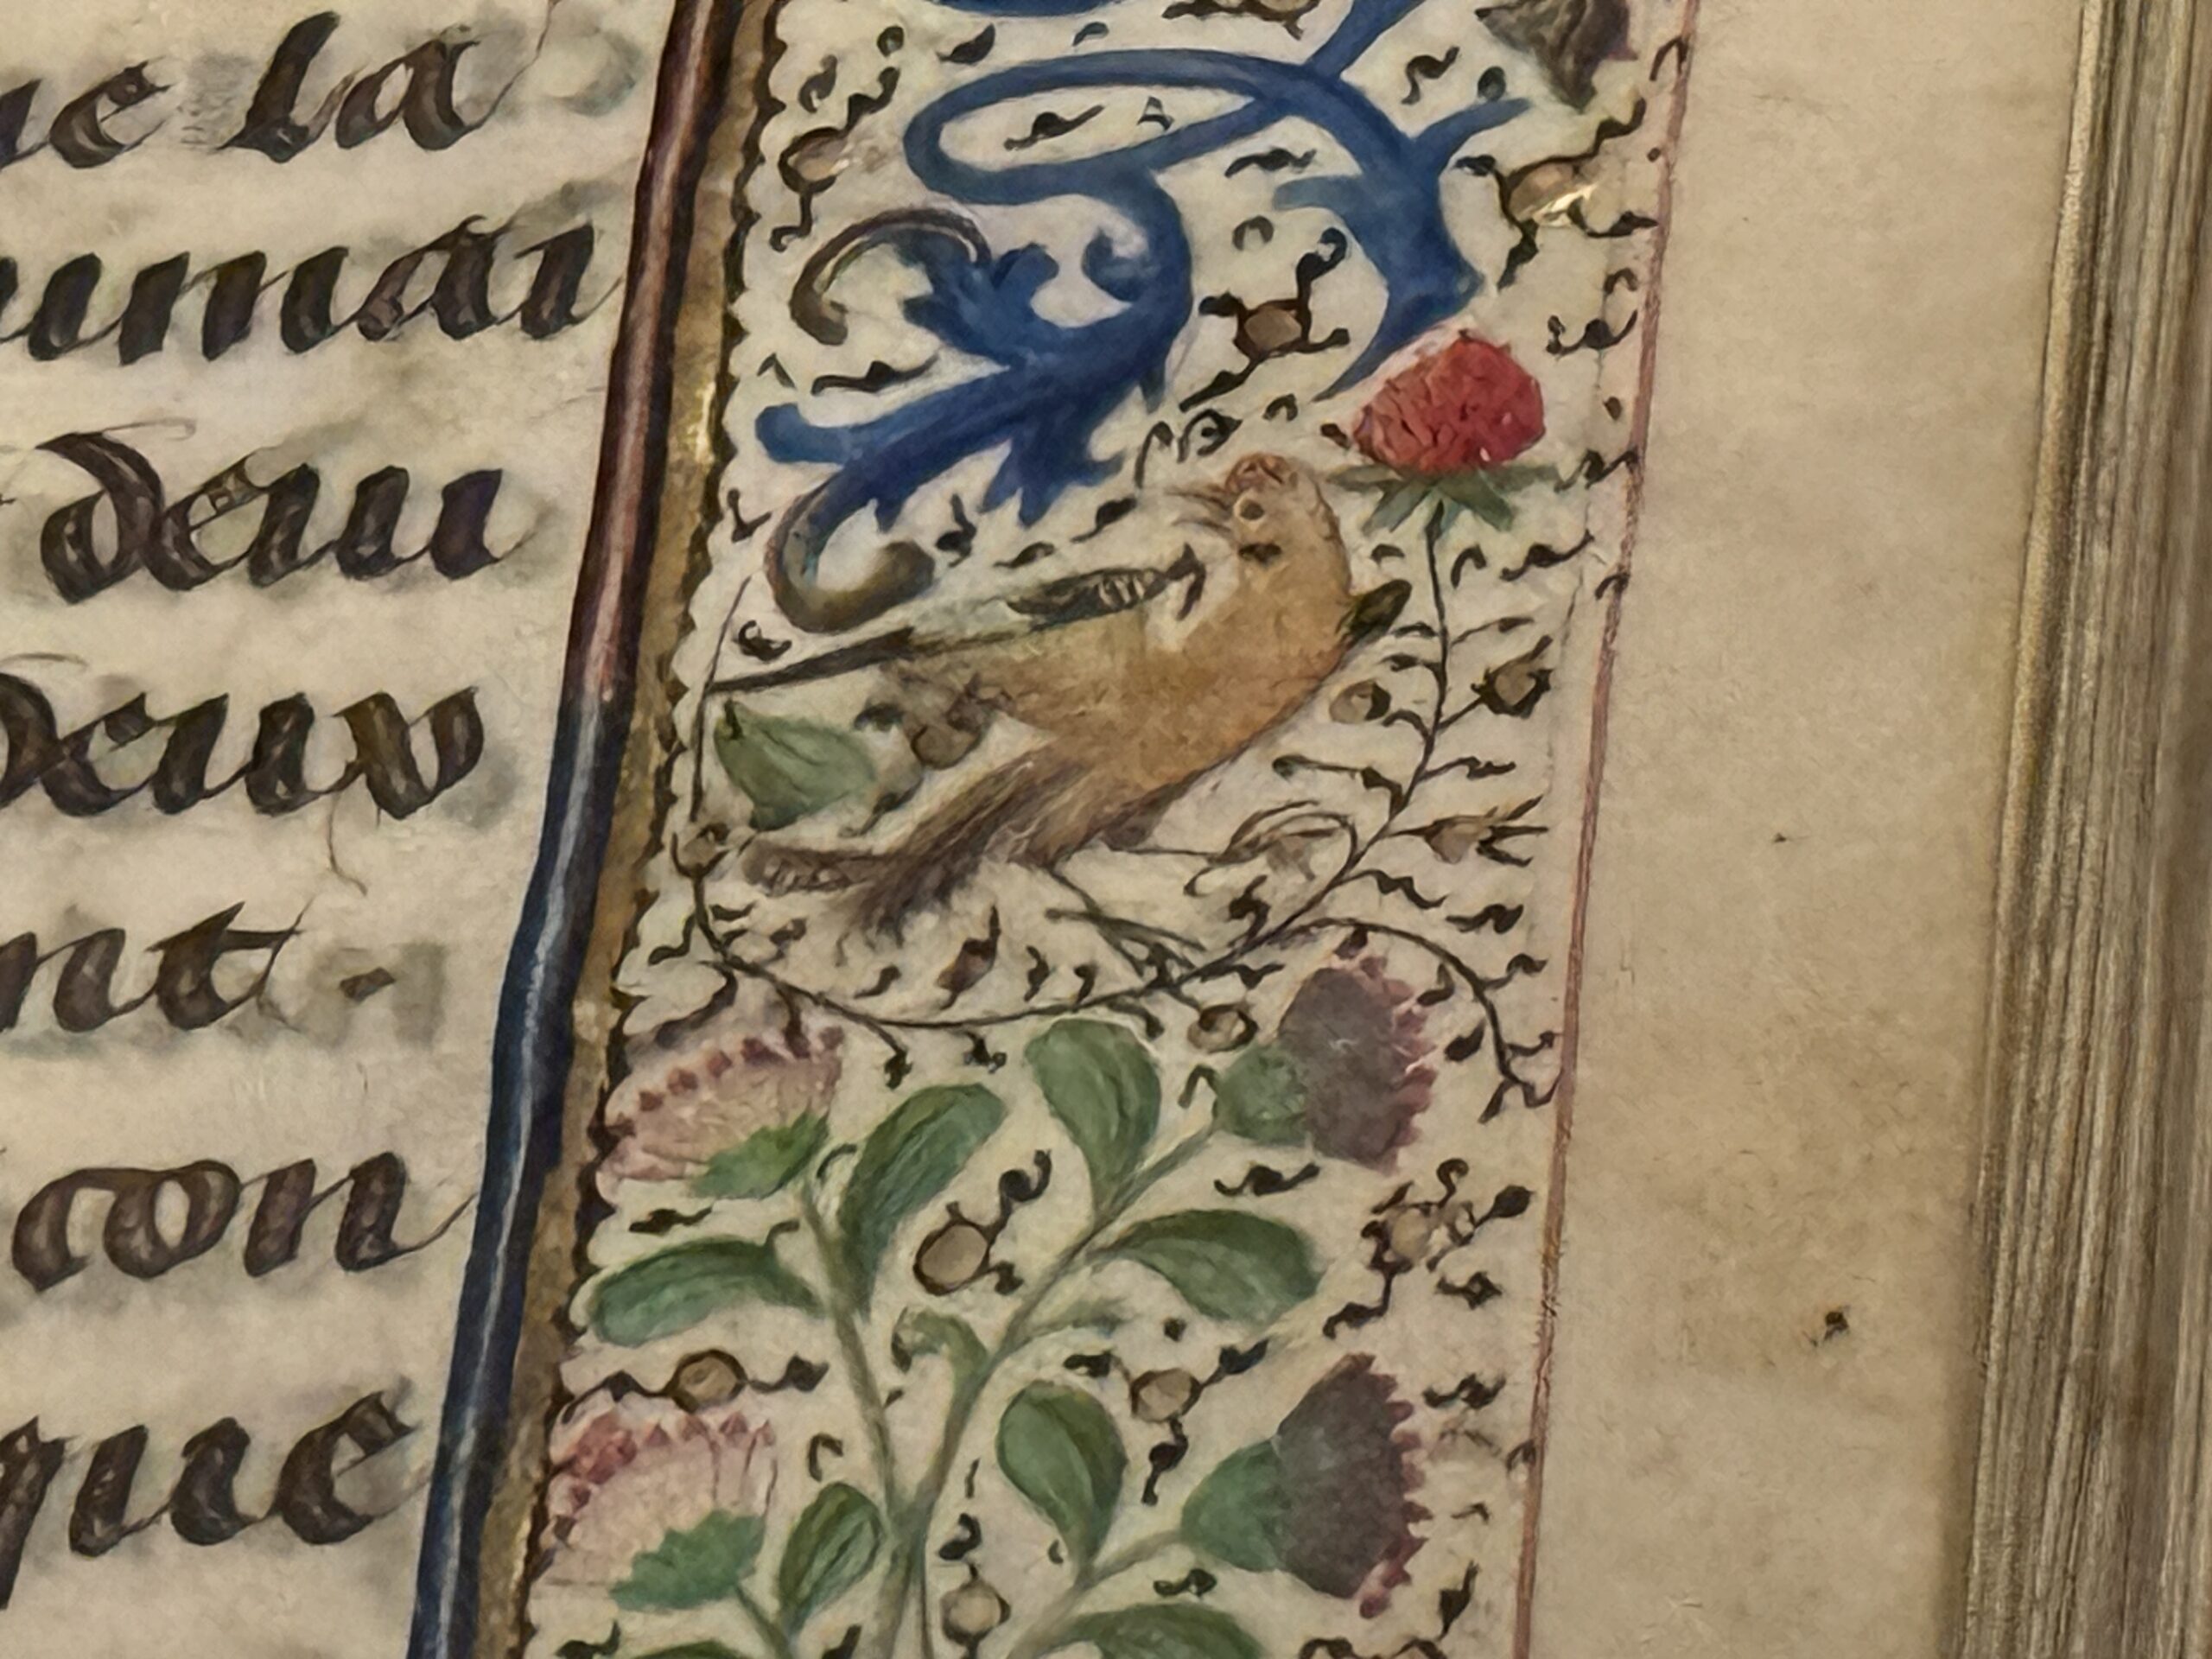 ue la
umai
deuu
deux
nt.
con
que